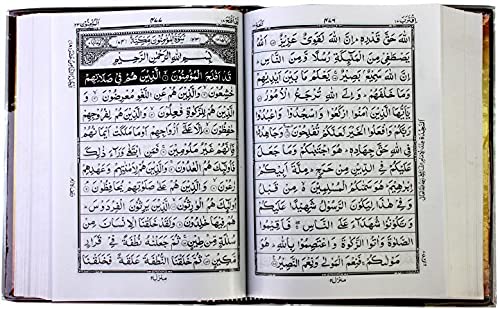 ۴۷۶
اللّٰهَ حَقَّ قَدْرِهٖ ؕ اِنَّ اللّٰهَ لَقَوِیٌّ عَزِیْزٌ ۝ اَللّٰهُ
یَصْطَفِیْ مِنَ الْمَلٰٓئِكَةِ رُسُلًا وَّ مِنَ النَّاسِ ؕ
اِنَّ اللّٰهَ سَمِیْعٌۢ بَصِیْرٌ ۝ یَعْلَمُ مَا بَیْنَ اَیْدِیْهِمْ
وَ مَا خَلْفَهُمْ ؕ وَ اِلَی اللّٰهِ تُرْجَعُ الْاُمُوْرُ ۝
یٰۤاَیُّهَا الَّذِیْنَ اٰمَنُوا ارْكَعُوْا وَ اسْجُدُوْا وَ اعْبُدُوْا
رَبَّكُمْ وَ افْعَلُوا الْخَیْرَ لَعَلَّكُمْ تُفْلِحُوْنَ ۝ وَ جَاهِدُوْا
فِی اللّٰهِ حَقَّ جِهَادِهٖ ؕ هُوَ اجْتَبٰىكُمْ وَ مَا جَعَلَ
عَلَیْكُمْ فِی الدِّیْنِ مِنْ حَرَجٍ ؕ مِلَّةَ اَبِیْكُمْ
اِبْرٰهِیْمَ ؕ هُوَ سَمّٰىكُمُ الْمُسْلِمِیْنَ ۙ۬ مِنْ قَبْلُ
وَ فِیْ هٰذَا لِیَكُوْنَ الرَّسُوْلُ شَهِیْدًا عَلَیْكُمْ
وَ تَكُوْنُوْا شُهَدَآءَ عَلَی النَّاسِ ۚۖ فَاَقِیْمُوا
الصَّلٰوةَ وَ اٰتُوا الزَّكٰوةَ وَ اعْتَصِمُوْا بِاللّٰهِ ؕ هُوَ
مَوْلٰىكُمْ ۚ فَنِعْمَ الْمَوْلٰی وَ نِعْمَ النَّصِیْرُ ۝
۴۷۷
بِسْمِ اللّٰهِ الرَّحْمٰنِ الرَّحِیْمِ
قَدْ اَفْلَحَ الْمُؤْمِنُوْنَ ۝ الَّذِیْنَ هُمْ فِیْ صَلَاتِهِمْ
خٰشِعُوْنَ ۝ وَ الَّذِیْنَ هُمْ عَنِ اللَّغْوِ مُعْرِضُوْنَ ۝ وَ الَّذِیْنَ
هُمْ لِلزَّكٰوةِ فٰعِلُوْنَ ۝ وَ الَّذِیْنَ هُمْ لِفُرُوْجِهِمْ
حٰفِظُوْنَ ۝ اِلَّا عَلٰۤی اَزْوَاجِهِمْ اَوْ مَا مَلَكَتْ اَیْمَانُهُمْ
فَاِنَّهُمْ غَیْرُ مَلُوْمِیْنَ ۝ فَمَنِ ابْتَغٰی وَرَآءَ ذٰلِكَ
فَاُولٰٓئِكَ هُمُ الْعٰدُوْنَ ۝ وَ الَّذِیْنَ هُمْ لِاَمٰنٰتِهِمْ وَ عَهْدِهِمْ
رٰعُوْنَ ۝ وَ الَّذِیْنَ هُمْ عَلٰی صَلَوٰتِهِمْ یُحَافِظُوْنَ ۝
اُولٰٓئِكَ هُمُ الْوٰرِثُوْنَ ۝ الَّذِیْنَ یَرِثُوْنَ الْفِرْدَوْسَ ؕ
هُمْ فِیْهَا خٰلِدُوْنَ ۝ وَ لَقَدْ خَلَقْنَا الْاِنْسَانَ مِنْ
سُلٰلَةٍ مِّنْ طِیْنٍ ۝ ثُمَّ جَعَلْنٰهُ نُطْفَةً فِیْ قَرَارٍ
مَّكِیْنٍ ۝ ثُمَّ خَلَقْنَا النُّطْفَةَ عَلَقَةً فَخَلَقْنَا